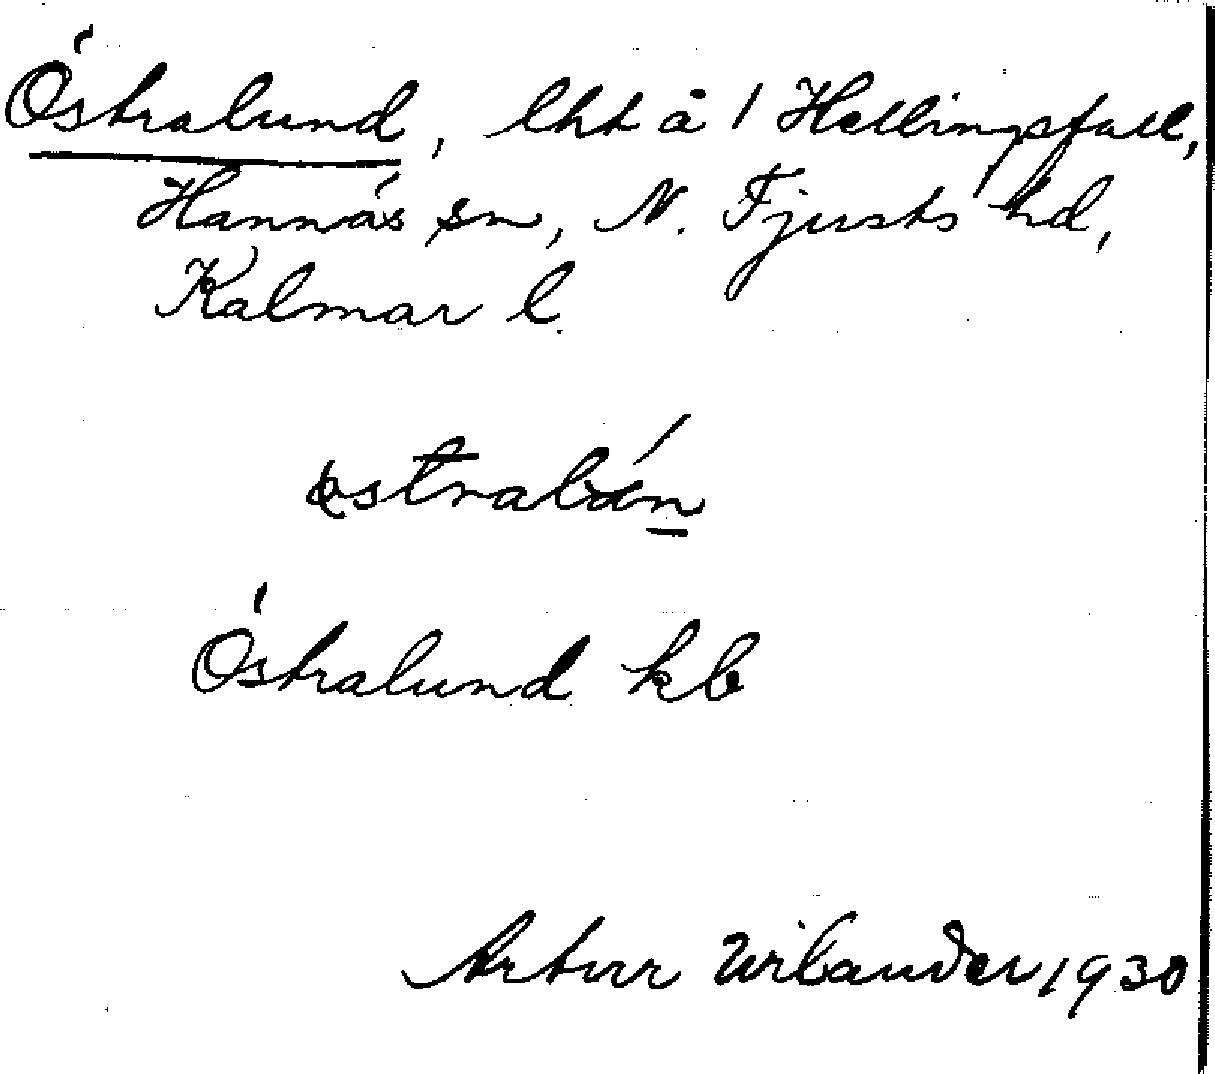 Östralund, lht å 1 Hellingsfall,
Hannäs sn, N. Tjusts hd,
Kalmar l.
Östralund kb
Artur Wilander 1930